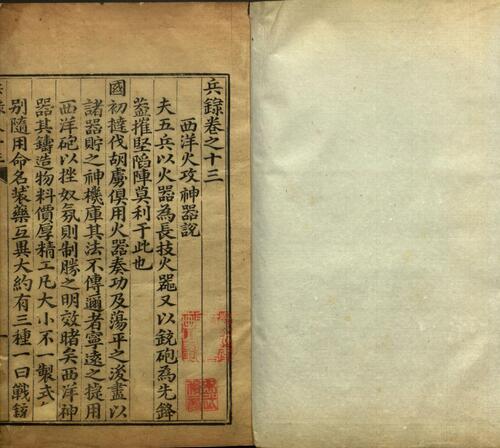 兵錄卷之十三
西洋火攻神器說
夫五兵以火器為長技火器又以銃砲為先鋒
葢摧堅陷陣莫利于此也
國初撻伐胡虜俱用火器奏功及蕩平之後盡以
諸器貯之神機庫其法不傳邇者寧遠之捷用
西洋砲以挫奴氛則制勝之明效睹矣西洋神
器其鑄造物料價厚精工凡大小不一製式
別隨用命名裝藥互異大約有三種一曰戰銃